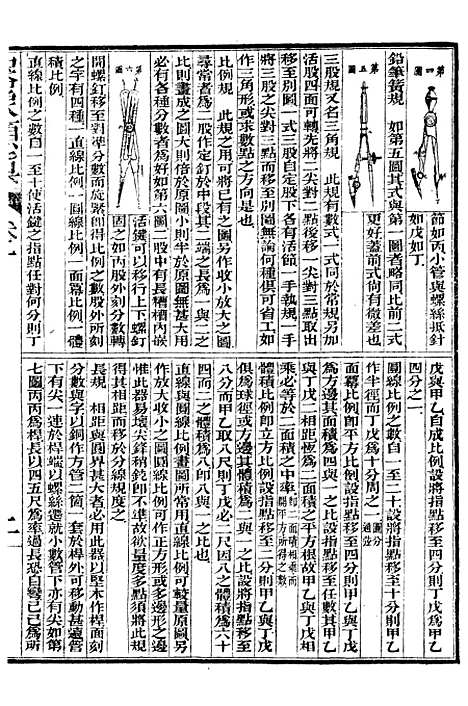 第四圖
節如丙小管與螺絲抵針
如戊如丁
第五圖
鉛筆簧規　如第五圖其式與第一圖者略同比前二式
更好蓋前式尚有微差也
三股規又名三角規　此規有數式一式同於常規另加
活股四面可轉先將二尖對二點後移一尖對三點取出
移至別圖一式三股自定股下各有活節一手執規一手
將三股之尖對三點而移至別圖無論何種俱可省工如
作三角形或求數點之方向是也
比例規　此規之用可將已有之圖另作收小放大之圖
尋常者爲二股作定釘於中段其二端之長爲一與二之
比則畫成之圖大則倍於原圖小則半於原圖無甚大用
必有各種分數者爲好如第六圖股中有長槽槽內嵌
第六圖
活鍵可以移行上下螺釘
因之如丙股外刻分數轉
開螺釘移至對準分數而旋緊卽得比例之數股外所刻
之字有四種一直線比例一圓線比例一面冪比例一體
積比例
直線比例之數自一至十使活鍵之指點任對何分則丁
戊與甲乙自成比例設將指點移至四分則丁戊爲甲乙
四分之一
圓線比例之數自一至二十設將指點移至十分則甲乙
作半徑而丁戊爲十分周之一
面冪比例卽平方比例設將指點移至四分則甲乙與丁戊
爲方邊其面積爲四與一之比設移至十分則甲乙
與丁戊二相距恆爲二面積之平方根故甲乙與丁戊相
乘必等於二面積之中率
體積比例卽立方比例設將指點移至一分則甲乙與丁戊
俱爲球徑或方邊其體積爲一與一之比設將指點移至
八分而甲乙取八尺則丁戊必二尺因八之體積爲六十
四而二之體積爲八卽八與一之比也
直線與圓線比例畫圖所常用直線比例可較量原圖另
作放大收小之圖圓線比例可作正方形或多邊形之邊
惟此器易壞尖鋒稍鈍卽不準故欲量度多次須將此規
得其相距而移於分線規度之
長規　相距與圓界甚大者必用此器以堅木作桿面刻
分數與字以銅作方筒一筒套於桿外可移動甚
下有尖一連於桿端以螺絲進就小數管下亦有尖如第
七圖丙丙爲桿長以四五尺爲率過長恐自彎己己爲所